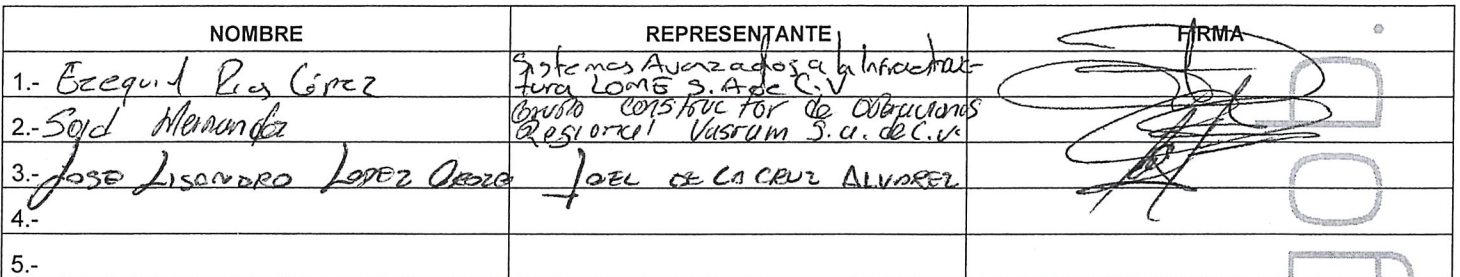 NOMBRE REPRESENTANTE FIRMA
1.- Ezequiel Rios López Sistemas Avanzados a la Infraestruc-
tura LOME S.A de C.V
2.- Said Hernandez Grupo constructor de Operaciones
Regional Vasram S.a. de C.V.
3.- JOSE LISANDRO LOPEZ OROZO JOEL DE LA CRUZ ALVAREZ
4.-
5.-